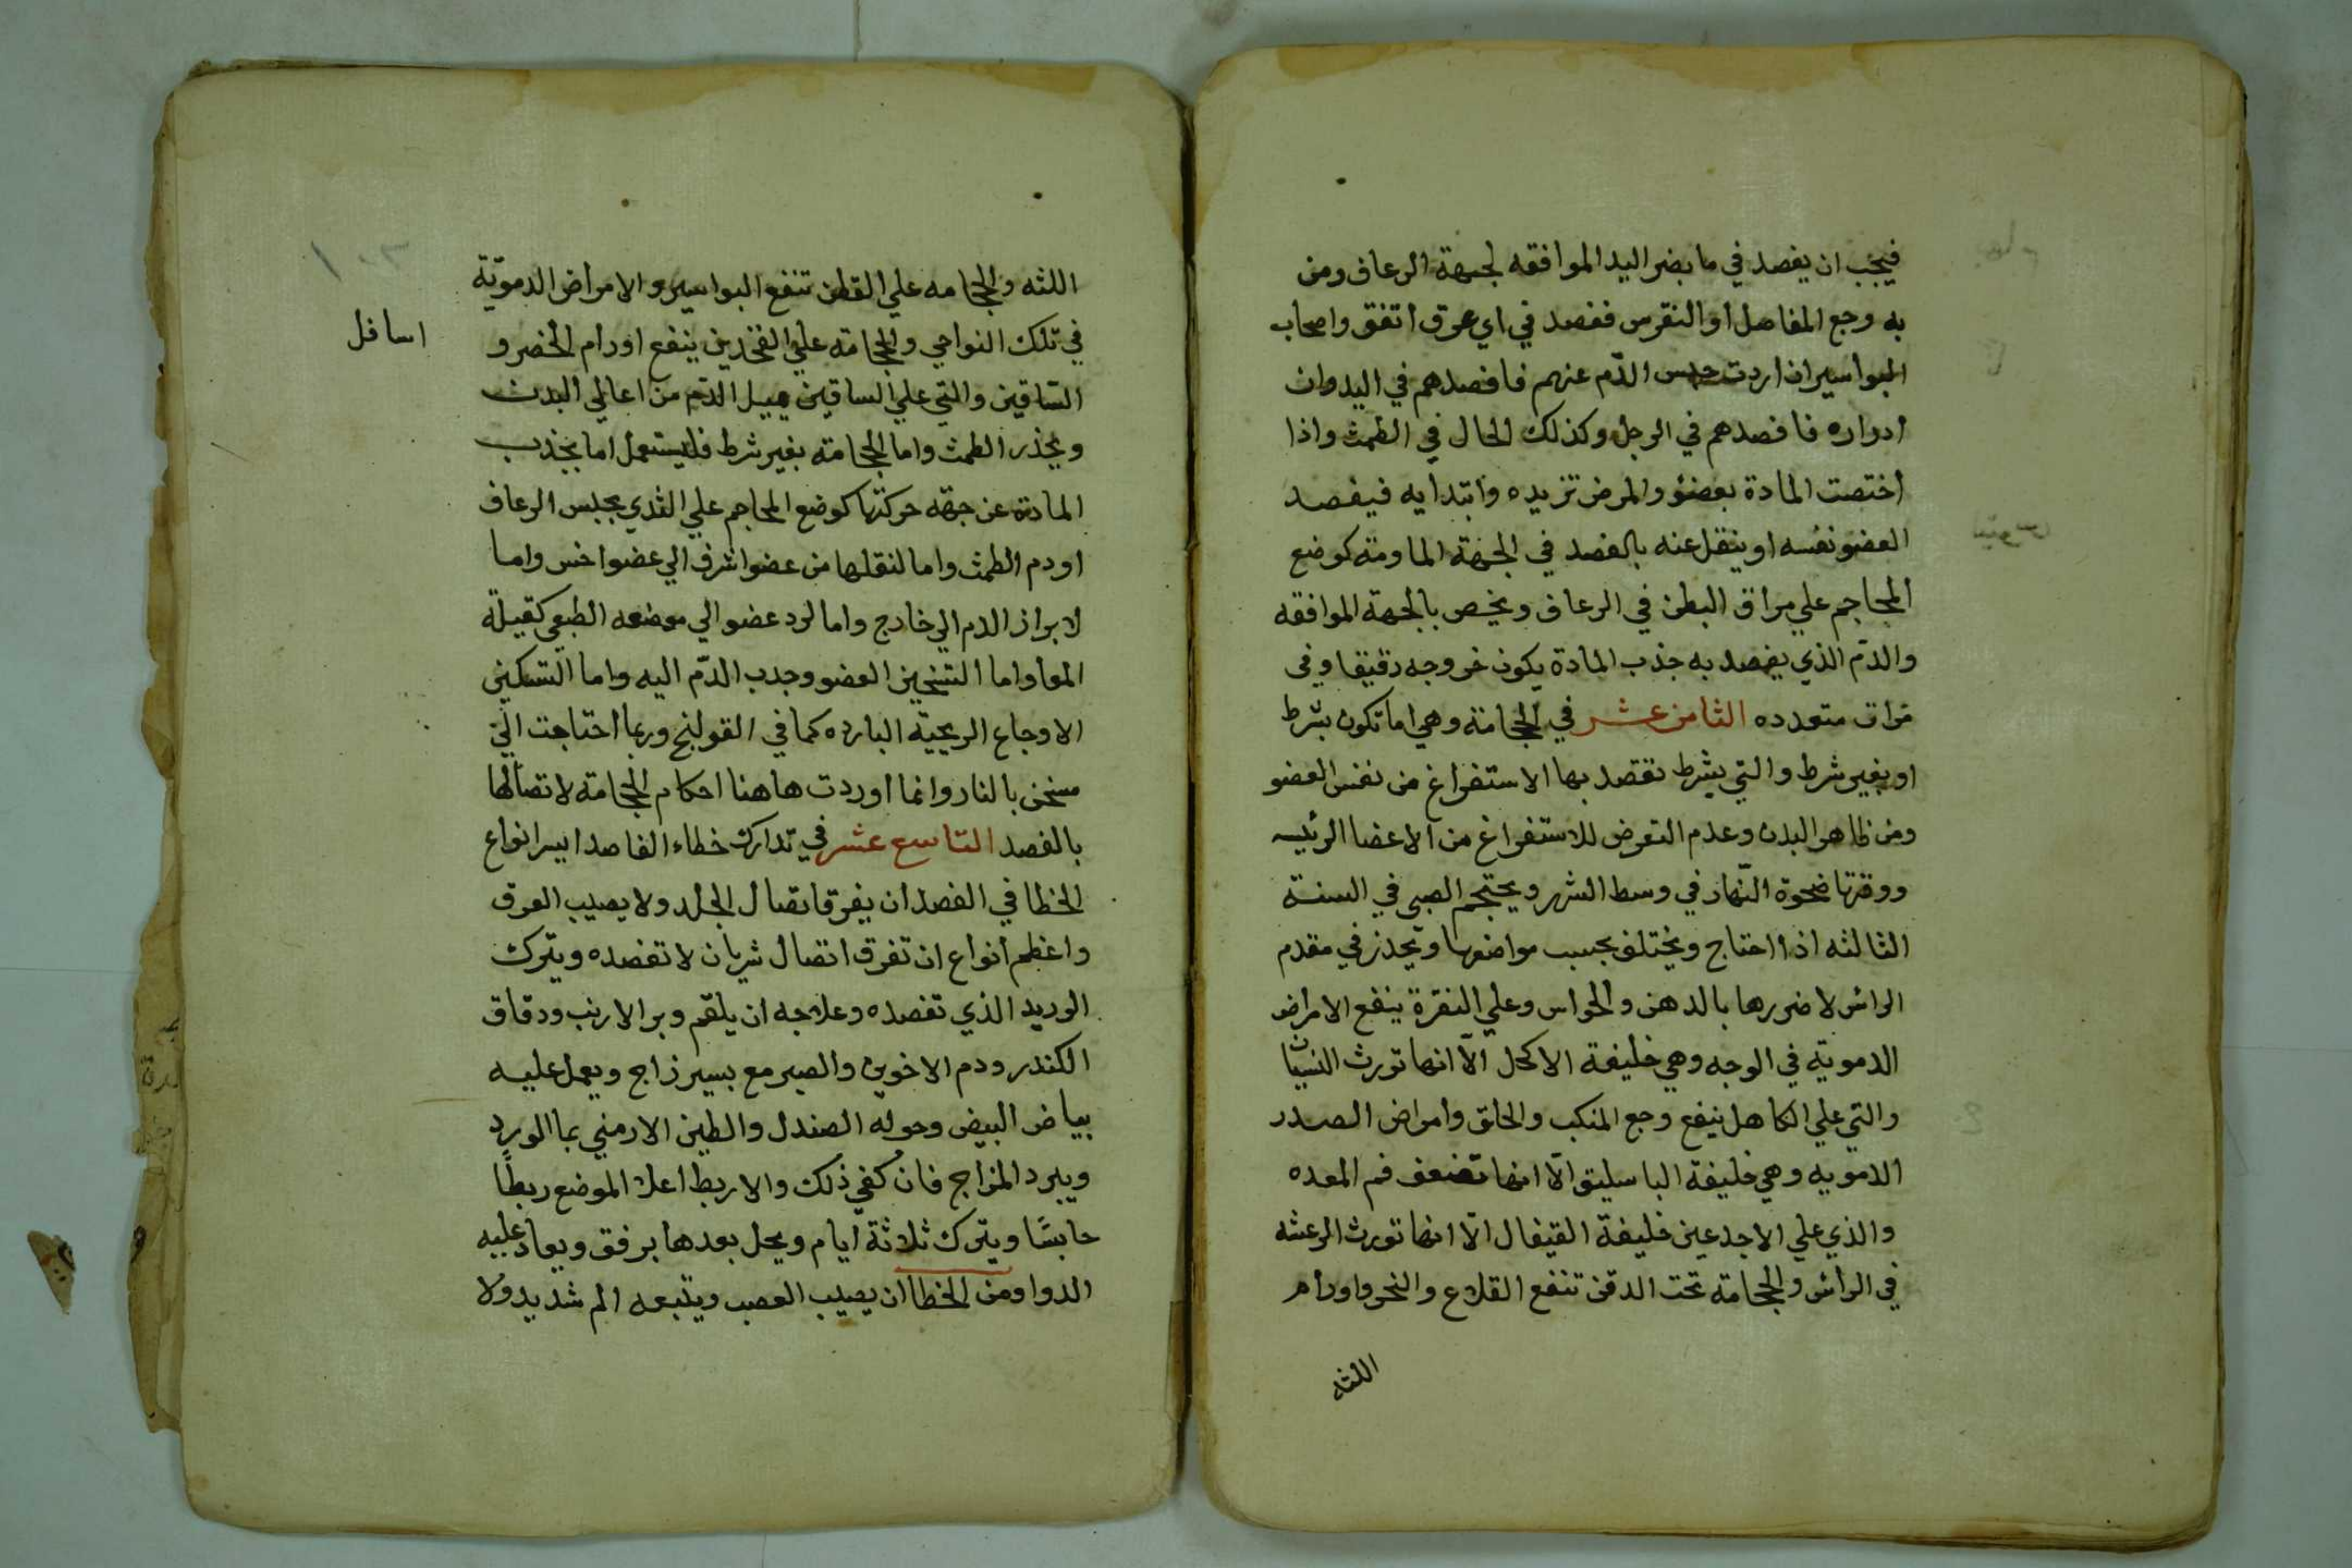 فيجب ان يفصد في مابضر اليد الموافقه لجهة الرعاف ومن
به وجع المفاصل او النقرس ففصد في اي عرق اتفق واصحاب
البواسير ان اردت حبس الدّم عنهم فافصدهم في اليد وان
ادواره فافصدهم في الرجل وكذلك الحال في الطمث واذا
اختصت المادة بعضو والمرض تزيده وابتدايه فيفصد
العضو نفسه او ينقل عنه بالفصد في الجهة الماومة كوضع
المحاجم علي مراق البطن في الرعاف ويخص بالجهة الموافقه
والدّم الذي يفصد به جذب المادة يكون خروجه دقيقا وفي
مرات متعدده الثامن عشر في الحجامة وهي اما تكون بشرط
او بغير شرط والتي بشرط تقصد بها الاستفراغ من نفس العضو
ومن ظاهر البدن وعدم التعرض للاستفراغ من الاعضا الرئيسه
ووقتها ضحوة النّهار في وسط الشهر ويحتجم الصبي في السنة
الثالثه اذا احتاج ويختلف بحسب مواضعها ويحذر في مقدم
الراس لاضررها بالدهن والحواس وعلي النقرة ينفع الامراض
الدمويّه في الوجه وهي خليفة الاكحل الّا انها تورث النسيان
والتي علي الكاهل ينفع وجع المنكب والحلق وامراض الصدر
الدمويه وهي خليفة الباسليق الّا انها تضعف فم المعده
والذي علي الاجدعين خليفة القيفال الّا انها تورث الرعشه
في الرأس والحجامة تحت الدقن تنفع القلاع والنحر واورام
اللثه
اللثه والحجامه علي القطن تنفع البواسير والامراض الدمويّة
في تلك النواحي والحجامة علي الفخدين ينفع اورام الخضر و
اسافل
السّاقين والتي علي الساقين يميل الدّم من اعالي البدن
ويحذر الطمث واما الحجامة بغير شرط فليستعمل اما بجذب
المادة عن جهة حركتها كوضع المحاجم علي الثدي بحبس الرعاف
او دم الطمث واما لنقلها من عضو اشرف الي عضو اخس واما
لابراز الدم الي خارج واما لرد عضو الي موضعه الطبعي كقيلة
المعا واما التسخين العضو وجدب الدّم اليه واما التسكين
الاوجاع الريحيّة البارده كما في القولنج وربما احتاجت الي
مسخن بالنار وانما اوردت هاهنا احكام الحجامة لاتصالها
بالفصد التاسع عشر في تدارك خطاء الفاصد ايسر انواع
الخطا في الفصد ان يفرق اتصال الجلد ولا يصيب العرق
واعظم انواع ان تفرق اتصال شريان لا تفصده ويترك
الوريد الذي تفصده وعلاجه ان يلقم وبر الارنب ودقاق
الكندر ودم الاخوين والصبر مع يسير زاج ويعمل عليه
بياض البيض وحوله الصندل والطين الارمني بما الورد
ويبرد المزاج فان كفي ذلك والا ربط اعلا الموضع ربطًا
حابسًا ويترك ثلاثة ايام ويحل بعدها برفق ويعاد عليه
الدوا ومن الخطا ان يصيب العصب ويتبعه الم شديد ولا